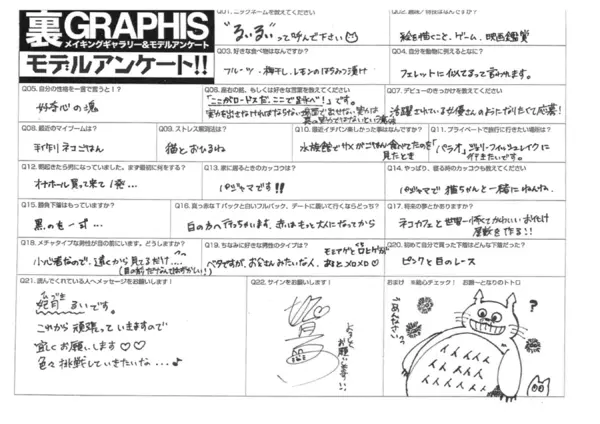 裏GRAPHIS
メイキングギャラリー&モデルアンケート
モデルアンケート!!
Q01. ニックネームを教えてください
"るいるい"って呼んで下さい
Q02. 趣味/特技はなんですか?
絵を描くこと、ゲーム、映画鑑賞
Q03. 好きな食べ物はなんですか?
フルーツ・梅干し・レモンのはちみつ漬け
Q04. 自分を動物に例えるとなに?
フェレットに似てるって言われます。
Q05. 自分の性格を一言で言うと!?
好奇心の塊
Q06. 座右の銘、もしくは好きな言葉を教えてください
「ここがロードスだ、ここで跳べ!」です。
Q07. デビューのきっかけを教えてください
活躍されている女優さんのようになりたくて応募!
Q08. 最近のマイブームは?
手作りネコごはん
Q09. ストレス解消法は?
猫とおひるね
Q10. 最近イチバン楽しかった事はなんですか?
水族館で
ごはん食べてたのを
見たとき
Q11. プライベートで旅行に行きたい場所は?
「パラオ」
ジェリーフィッシュレイクに
行きたいです。
Q12. 朝起きたら男になっていました。まず最初に何をする?
オナホール買って来て1発…
Q13. 家に居るときのカッコウは?
パジャマです!!
Q14. やっぱり、寝る時のカッコウも教えてください
パジャマで猫ちゃんと一緒にねんね。
Q15. 勝負下着はもっていますか?
黒のを一式…
Q16. 真っ赤なTバックと白いフルバック、デートに履いて行くならどっち?
白の方へ行っちゃいます、赤はもっと大人になってから
Q17. 将来の夢とかありますか?
ネコカフェと世界一怖くてかわいいお化け
屋敷を作る!!
Q18. メチャタイプな男性が目の前にいます。どうしますか?
小心者なので…遠くから見てるだけ…
Q19. ちなみに好きな男性のタイプは?
ベタですが、お父さんみたいな人、
メロメロ
Q20. 初めて自分で買った下着はどんな下着だった?
ピンクと白のレース
Q21. 読んでくれている人へメッセージをお願いします!
妃月るいです。
これから頑張っていきますので
宜しくお願いします♡♡
色々挑戦していきたいな…♪
Q22. サインをお願いします!
どうぞ
お願いします!!
おまけ ※絵心チェック! お題→となりのトトロ
ごめんなさいっ
?